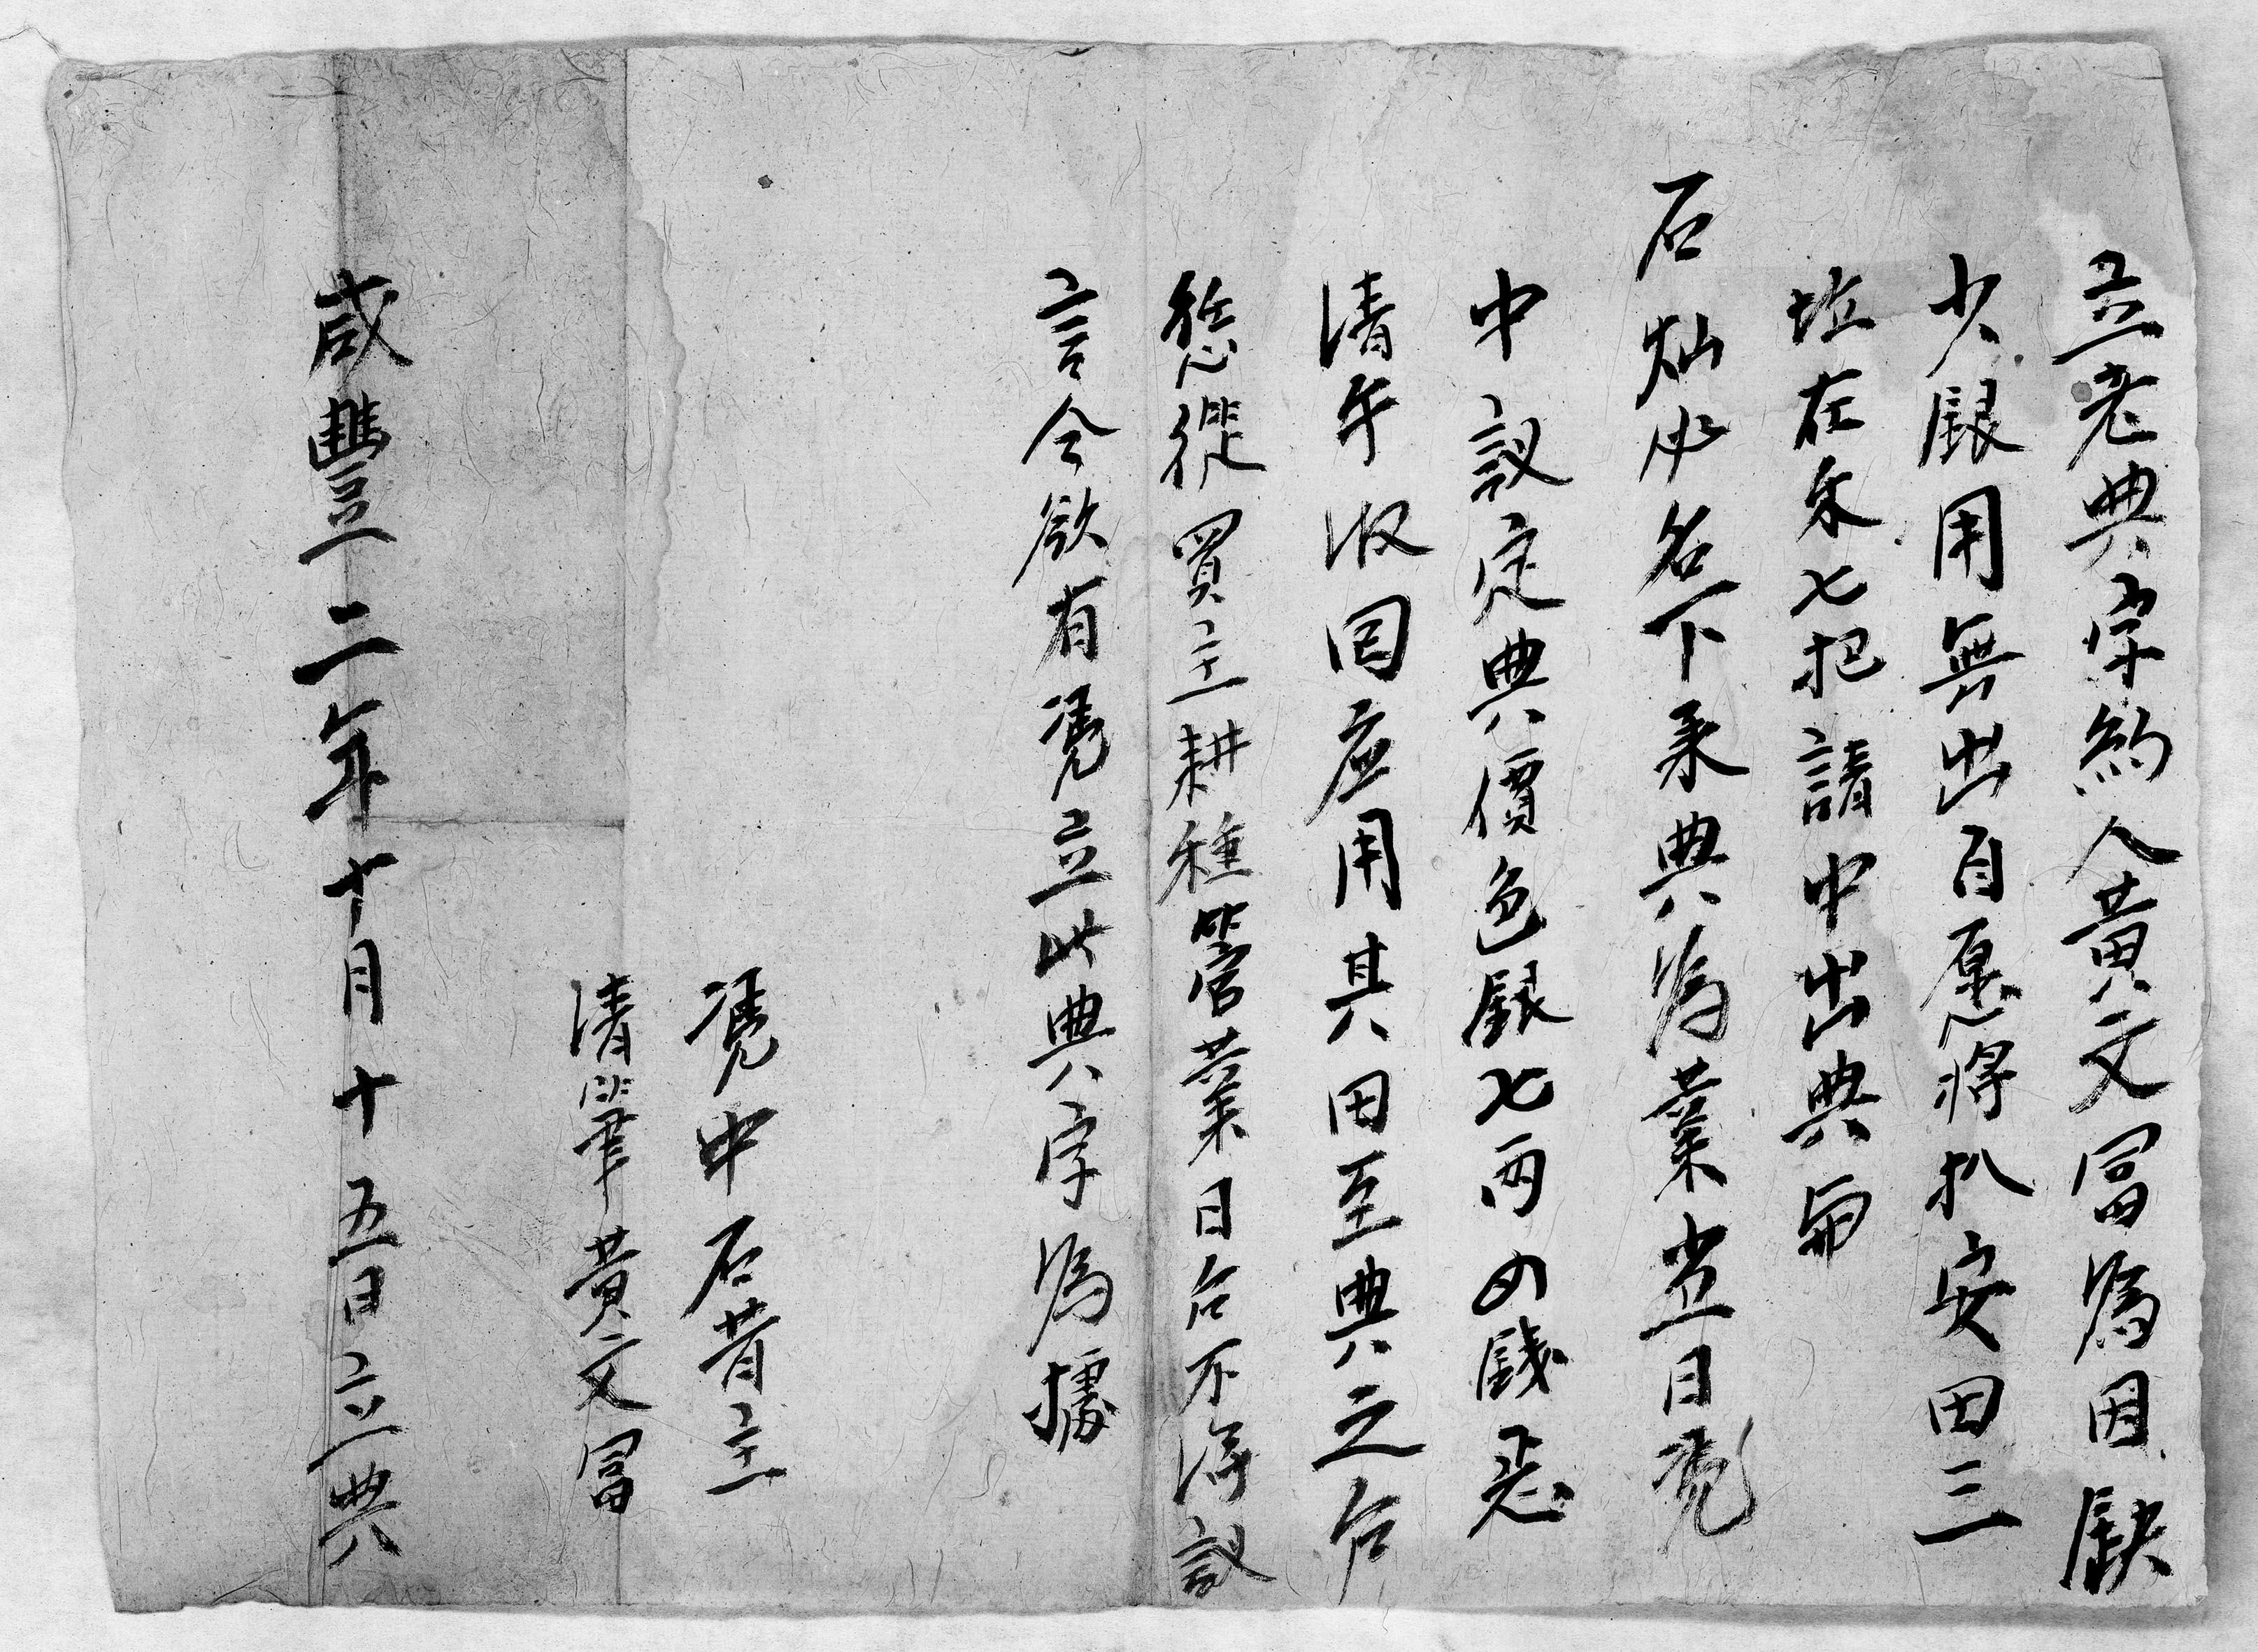 立老典字約人黃文冨為因缺
少銀用無出自愿將扒安田三
坵在禾七把請中出典與
石灿 名下承典為業當日憑
中議定典價色銀七両四錢忝
清年收回应用其田至典之后
慫從買主耕種管業日后不得議
言今欲有憑立此典字為據
憑中石昔主
清筆黃文冨
咸豐二年十月十五日立典